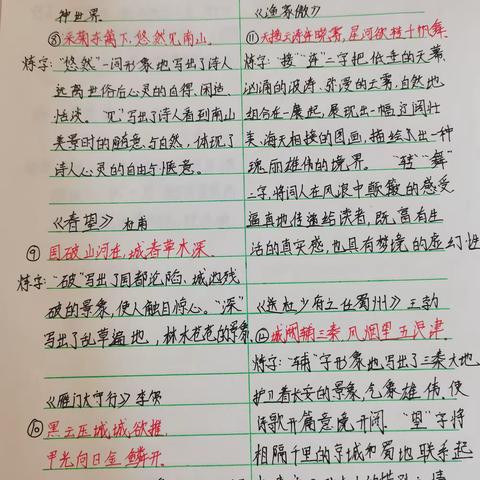 种世界
⑧采菊东篱下,悠然见南山。
炼字:"悠然"一词形象地写出了诗人
远离世俗后心灵的自得、闲适、
恬淡。"见"写出了诗人看到南山
美景时的随意与自然,体现了
诗人心灵的自由与惬意。
《春望》 杜甫
⑨ 国破山河在,城春草木深。
炼字:"破"写出了国都沦陷、城池残
破的景象,使人触目惊心。"深"
写出了乱草遍地,林木苍苍的景象
《雁门太守行》李贺
⑩ 黑云压城城欲摧,
甲光向日金鳞开。
《渔家傲》
⑪天接云涛连晓雾,星河欲转千帆舞。
炼字:"接""连"二字把低垂的天幕、
汹涌的波涛、弥漫的云雾,自然地
组合在一起,展现出一幅辽阔壮
美、海天相接的图画,描绘出一种
瑰丽雄伟的境界。 "转""舞"
二字,将词人在风浪中颠簸的感受
逼真地传递给读者,既富有生
活的真实感,也具有梦境的虚幻性
《送杜少府之任蜀州》 王勃
⑫城阙辅三秦,风烟望五津。
炼字:"辅"字形象地写出了三秦大地
护卫着长安的景象,气象雄伟,使
诗歌开篇意境开阔。 "望"字将
相隔千里的京城和蜀地联系起